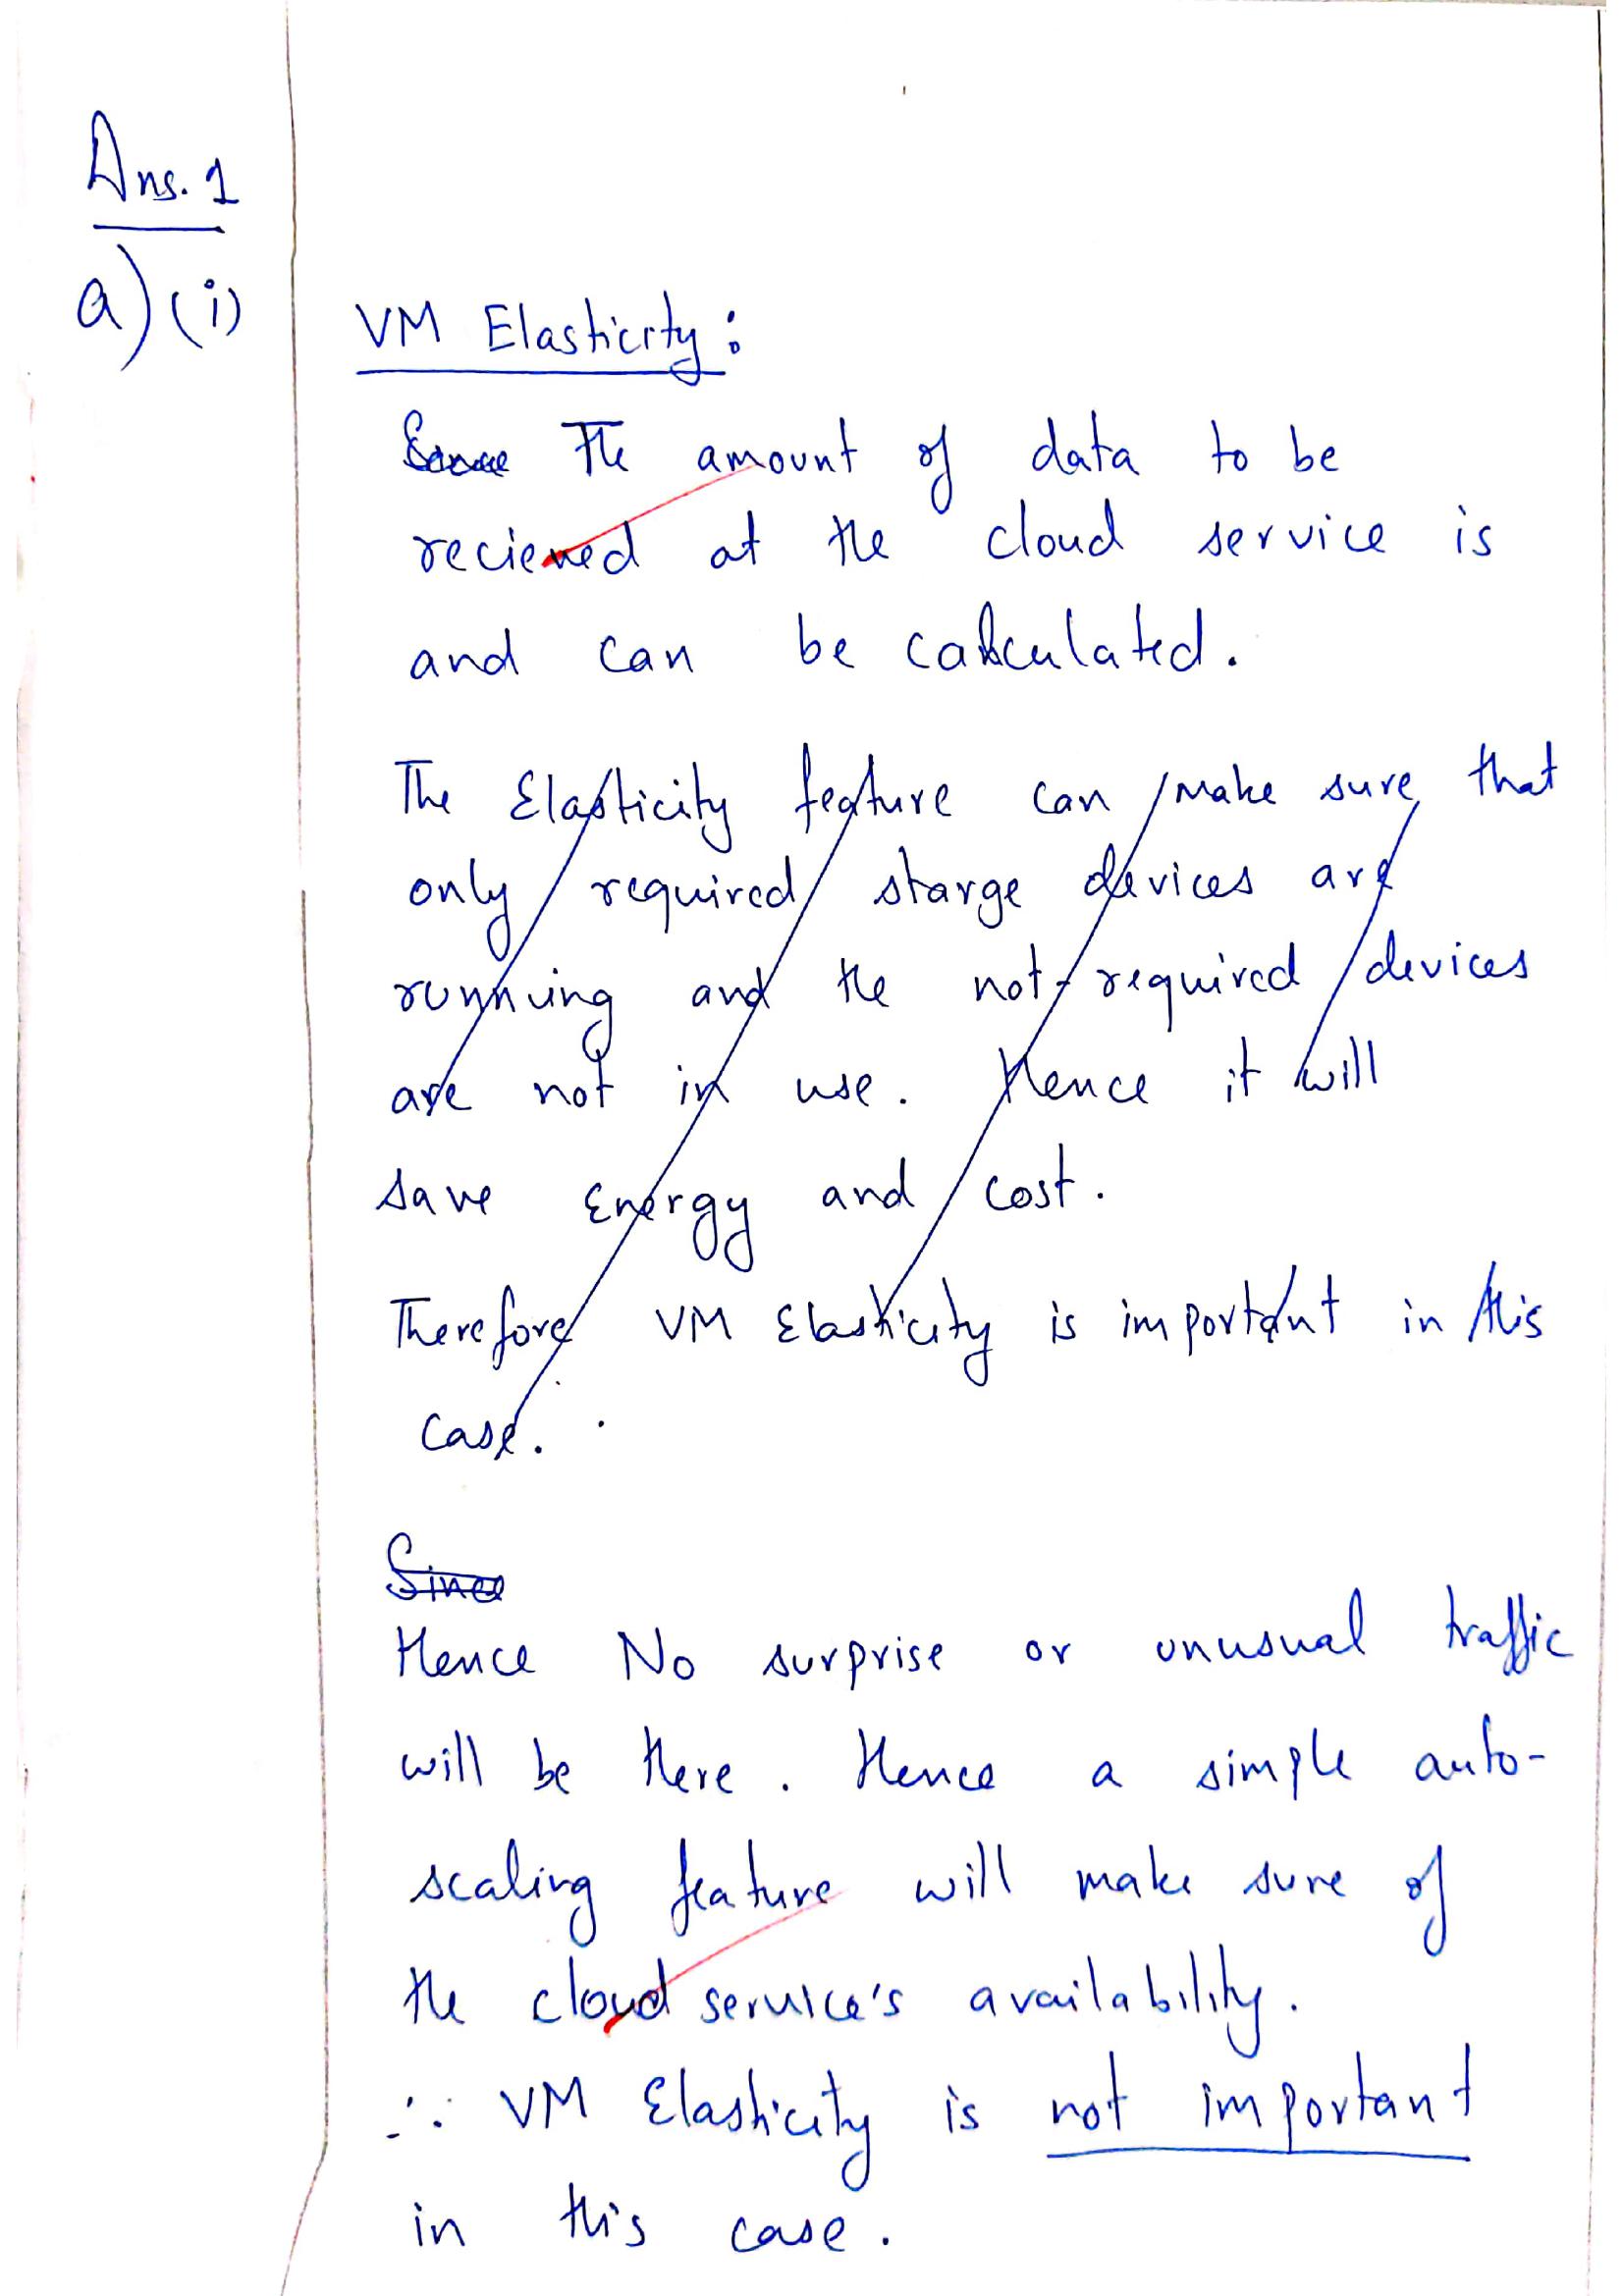 Ans. 1
a) (i)
VM Elasticity:
The amount of data to be
recieved at the cloud service is
and can be calculated.
The Elasticity feature can make sure that
only required starge devices are
running and the not-required devices
are not in use. Hence it will
save Energy and cost.
Therefore VM Elasticity is important in this
case.
Since
Hence No surprise or unusual traffic
will be there. Hence a simple auto-
scaling feature will make sure of
the cloud service's availability.
∴ VM Elasticity is not important
in this case.